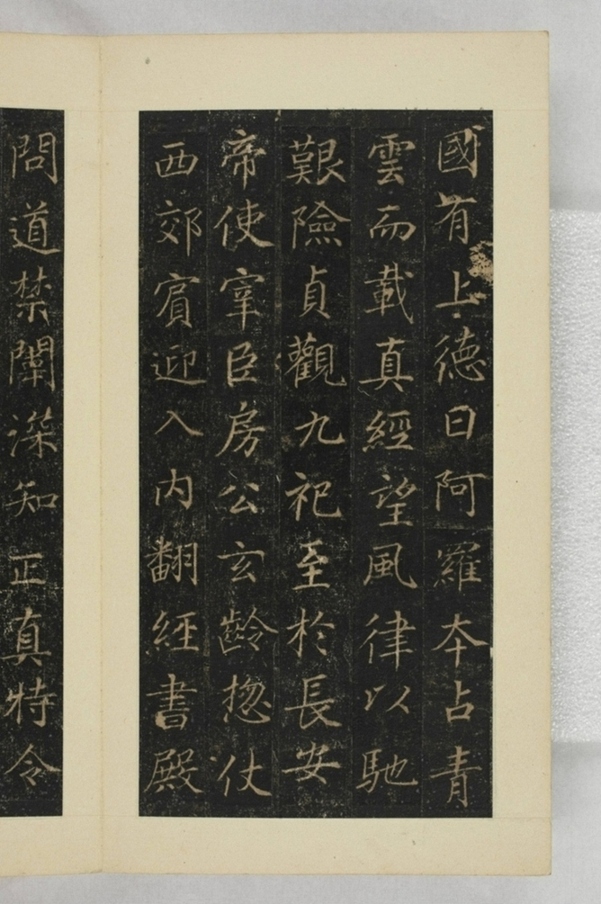 國有上德曰阿羅本占青
雲而載真經望風律以馳
艱險貞觀九祀至於長安
帝使宰臣房公玄齡惣仗
西郊賓迎入內翻經書殿
問道禁闈深知正真特令